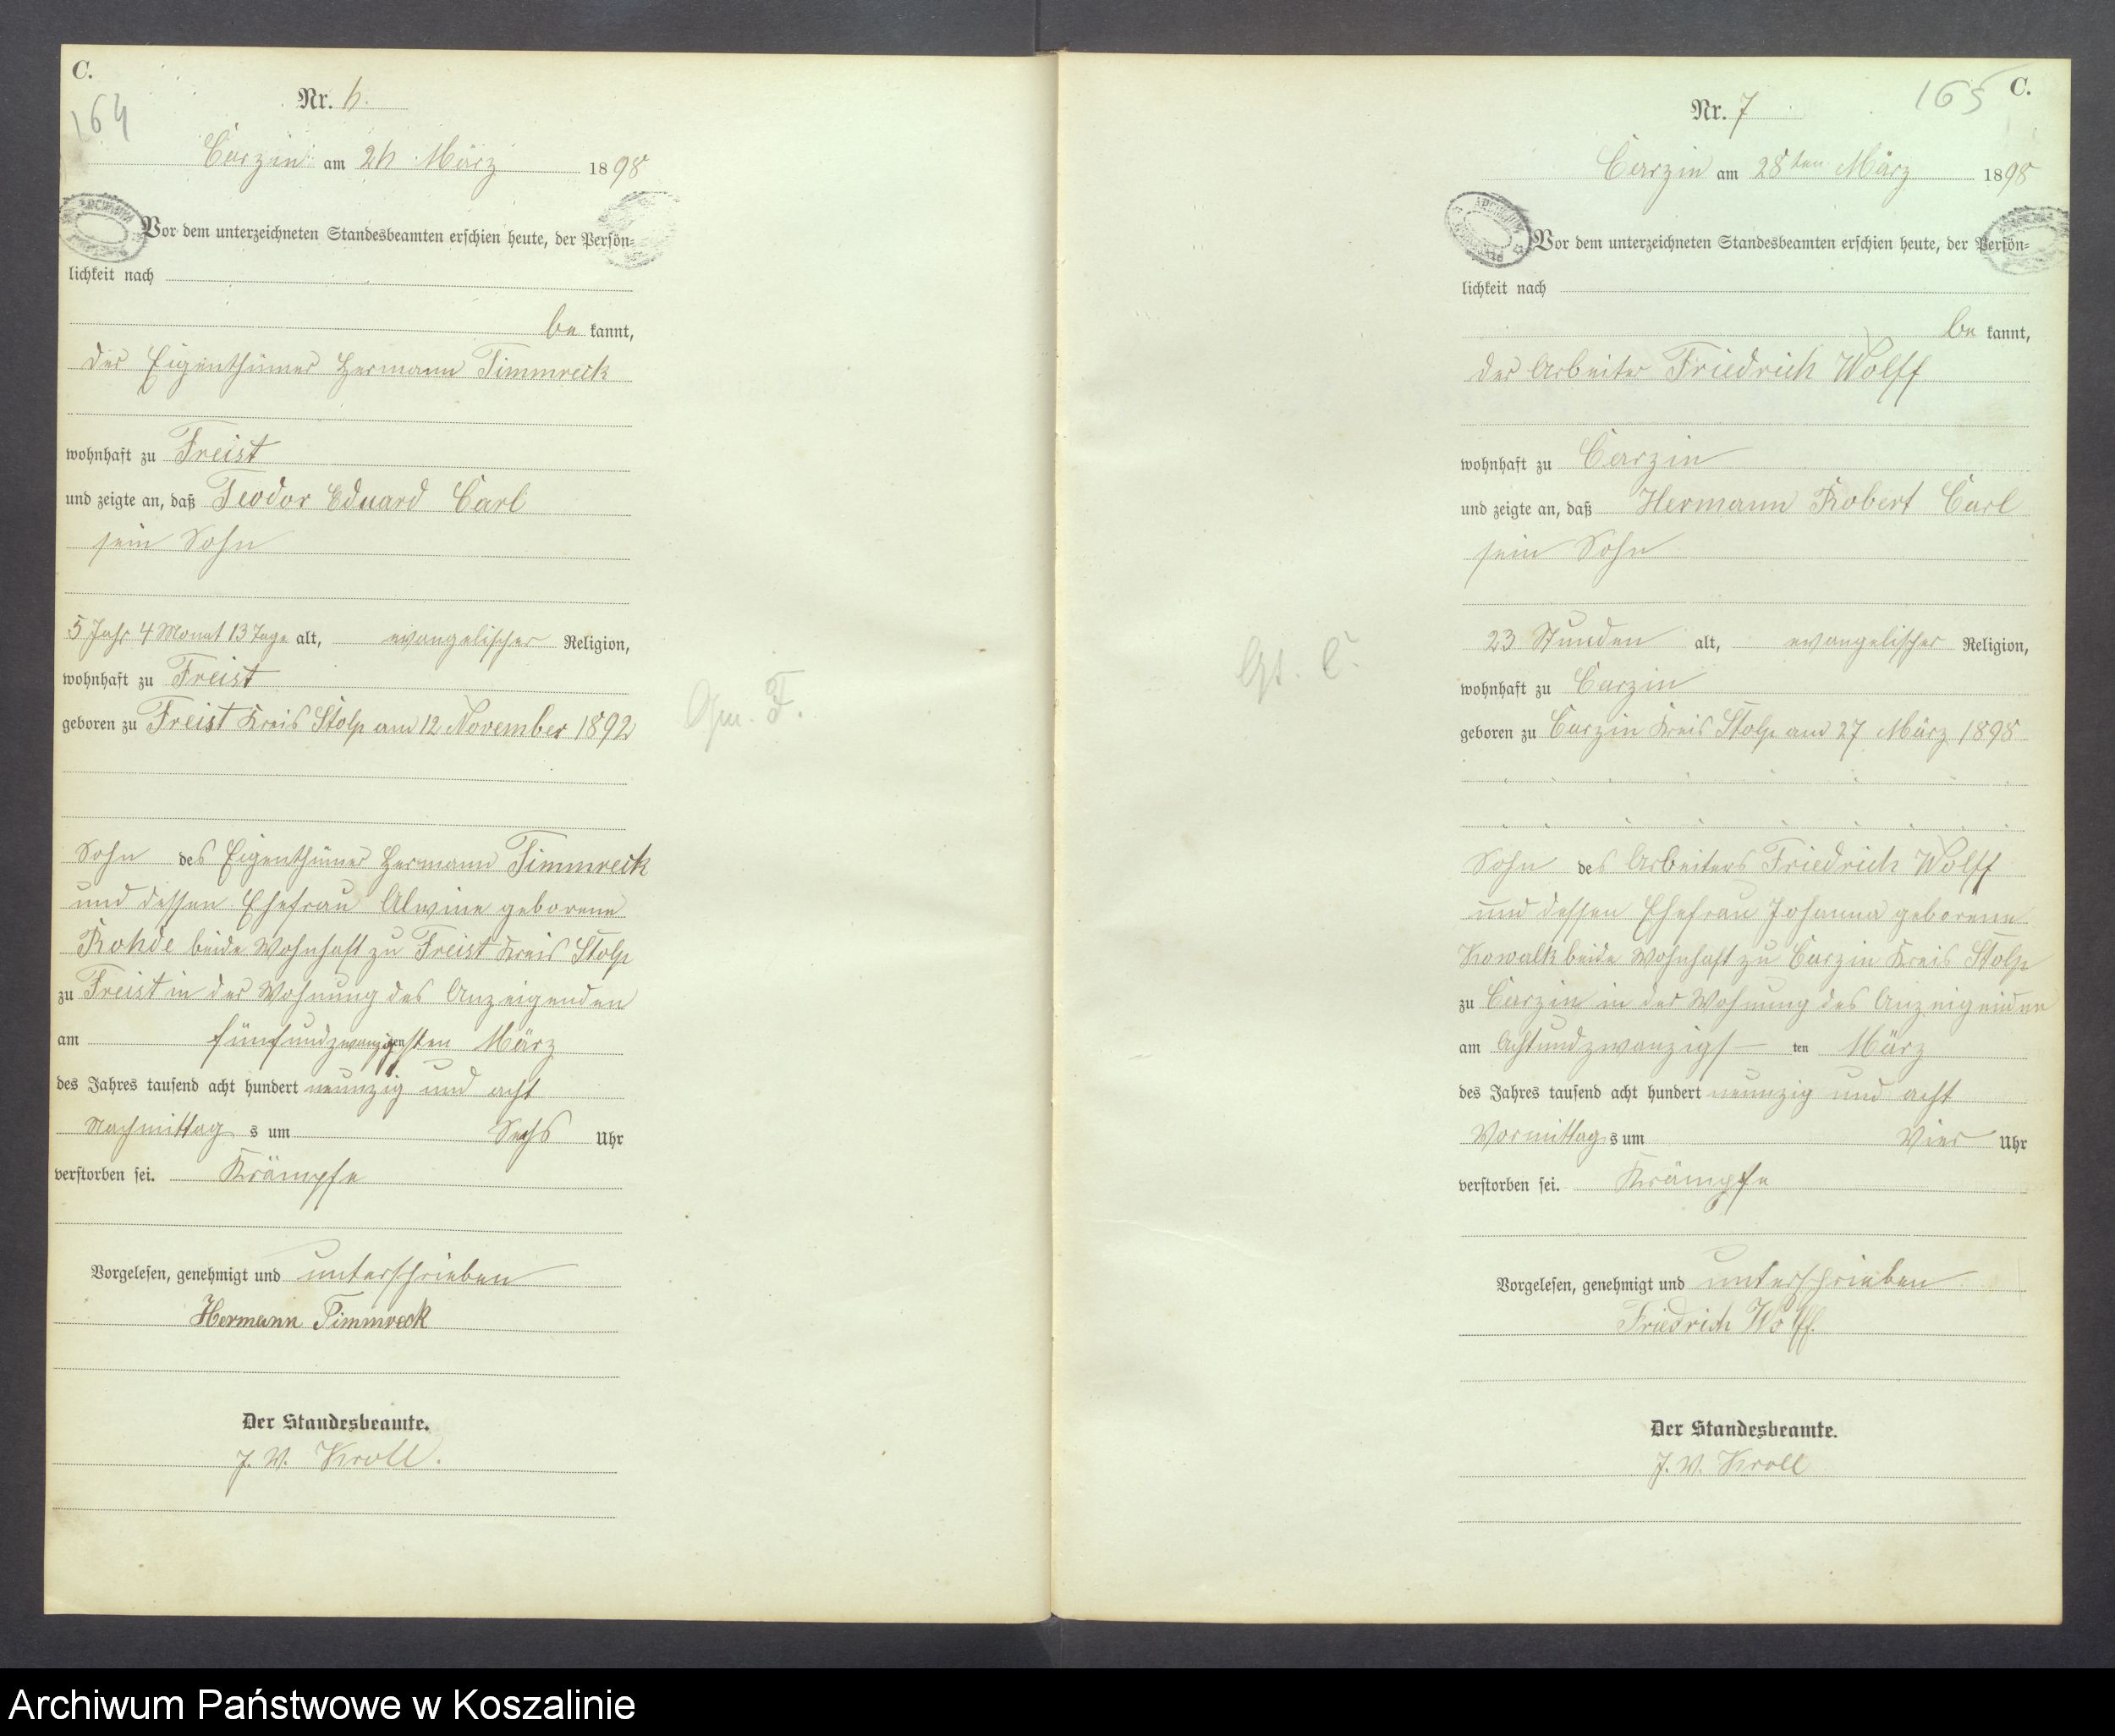 C.
164
Nr. 6.
Carzin am 26 März 1898
Vor dem unterzeichneten Standesbeamten erschien heute, der Persön-
lichkeit nach
be kannt,
der Eigenthümer Hermann Timmreck
wohnhaft zu Freist
und zeigte an, daß Teodor Eduard Carl
sein Sohn
5 Jahr 4 Monat 13 Tage alt, evangelischer Religion,
wohnhaft zu Freist
geboren zu Freist Kreis Stolp am 12 November 1892
Sohn des Eigenthümer Hermann Timmreck
und dessen Ehefrau Alwine geborene
Rohde beide Wohnhaft zu Freist Kreis Stolp
zu Freist in der Wohnung des Anzeigenden
am fünfundzwanzigsten März
des Jahres tausend acht hundert neunzig und acht
Nachmittag s um Sechs Uhr
verstorben sei. Krämpfe
Vorgelesen, genehmigt und unterschrieben
Hermann Timmreck
Der Standesbeamte.
J. V. Kroll.
Gm. F.
165
C.
Nr. 7
Carzin am 28ten März 1898
ARCHIWUM
Vor dem unterzeichneten Standesbeamten erschien heute, der Persön-
lichkeit nach
be kannt,
der Arbeiter Friedrich Wolff
wohnhaft zu Carzin
und zeigte an, daß Hermann Robert Carl
sein Sohn
23 Stunden alt, evangelischer Religion,
wohnhaft zu Carzin
geboren zu Carzin Kreis Stolp am 27 März 1898
Sohn des Arbeiters Friedrich Wolff
und dessen Ehefrau Johanna geborene
Kowalk beide Wohnhaft zu Carzin Kreis Stolp
zu Carzin in der Wohnung des Anzeigenden
am Achtundzwanzigs ten März
des Jahres tausend acht hundert neunzig und acht
Vormittag s um Vier Uhr
verstorben sei. Krämpfe
Vorgelesen, genehmigt und unterschrieben
Friedrich Wolff.
Der Standesbeamte.
J. V. Kroll
Gt. C.
Archiwum Państwowe w Koszalinie